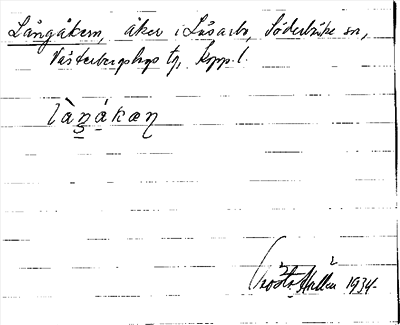 Långåkern, åker i Lisarbo, Söderbärke sn,
Västerbergslags tg, Kopp. l.
làŋákæṇ
Gösta Hallén 1934.